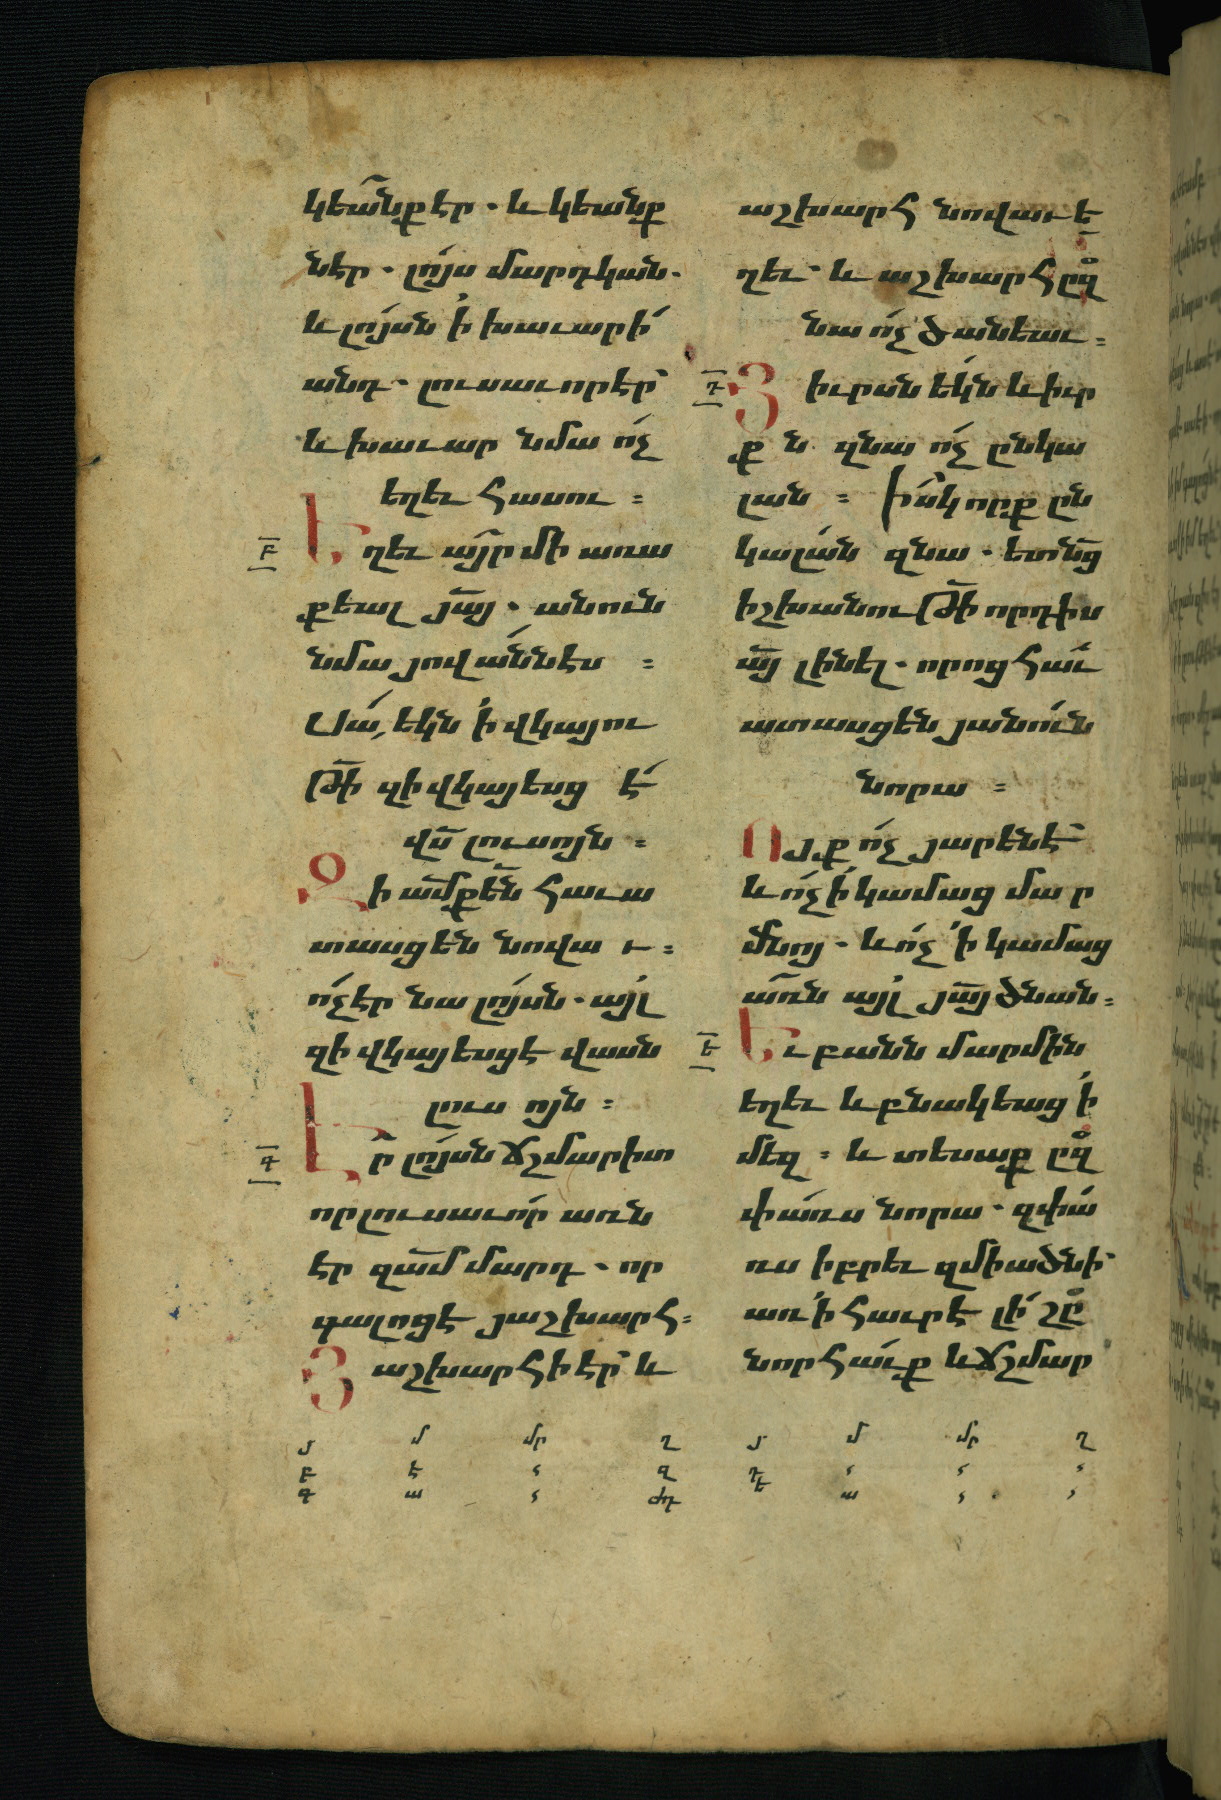 կեա՞նք էր · և կեանք
ներ · լո՛յս մարդկան ·
և լո՛յսն ի՛ խաւարի՛
անդ · լուսաւորէր՝
և խաւար նմա ո՛չ
եղեւ հասու ։
Բ Եղեւ այր մի առա
քեալ յա՟յ · անուն
նմա յովա՛ննէս ։
Սա՛, եկն ի՛ վկայու
թի՟ զի վկայեսցէ՛
վս՟ լուսոյն ։
Զի ամ՟քեն հաւա
տասցեն նովաւ ։
ո՛չ էր նա լո՛յսն · այլ
զի վկայեսցէ վասն
լուսոյն ։
Գ Էր լո՛յսն ճշմարիտ
որ լուսաւո՛ր առն
էր զամ՟ մարդ · որ
գալոցէ յաշխարհ ։
Յաշխարհի էր՝ և
աշխարհ նովաւ ե
ղեւ՝ և աշխարհ ըզ
նա ո՛չ ծանեաւ ։
Դ Յիւրսն եկն և իւր
քն զնա ո՛չ ընկա
լան ։ Իսկ որք ըն
կալա՛ն զնա · ետ նց՟
իշխանութի՟ որդիս
այ՟ լինել · որոց հաւ
ատասցեն յանուն
նորա ։
Ոյք ո՛չ յարենէ՝
և ո՛չ ի՛ կամաց մար
մնոյ · և ո՛չ ի՛ կամաց
առն այլ յա՟յ ծնան ։
Ե Եւ բանն մարմին
եղեւ և բնակեաց ի՛
մեզ ։ և տեսաք ըզ
փա՛ռս նորա · զփա՛
ռս իբրեւ զմիածնի՝
առ ի՛ հաւրէ լի՛ շը
նորհաւք և ճշմար
մ մ մր ղ մ մ մր ղ
Բ Է ՙ Զ Դ ՙ ՙ ՙ
Գ ա ՙ ԺԴ Ե ա ՙ ՙ